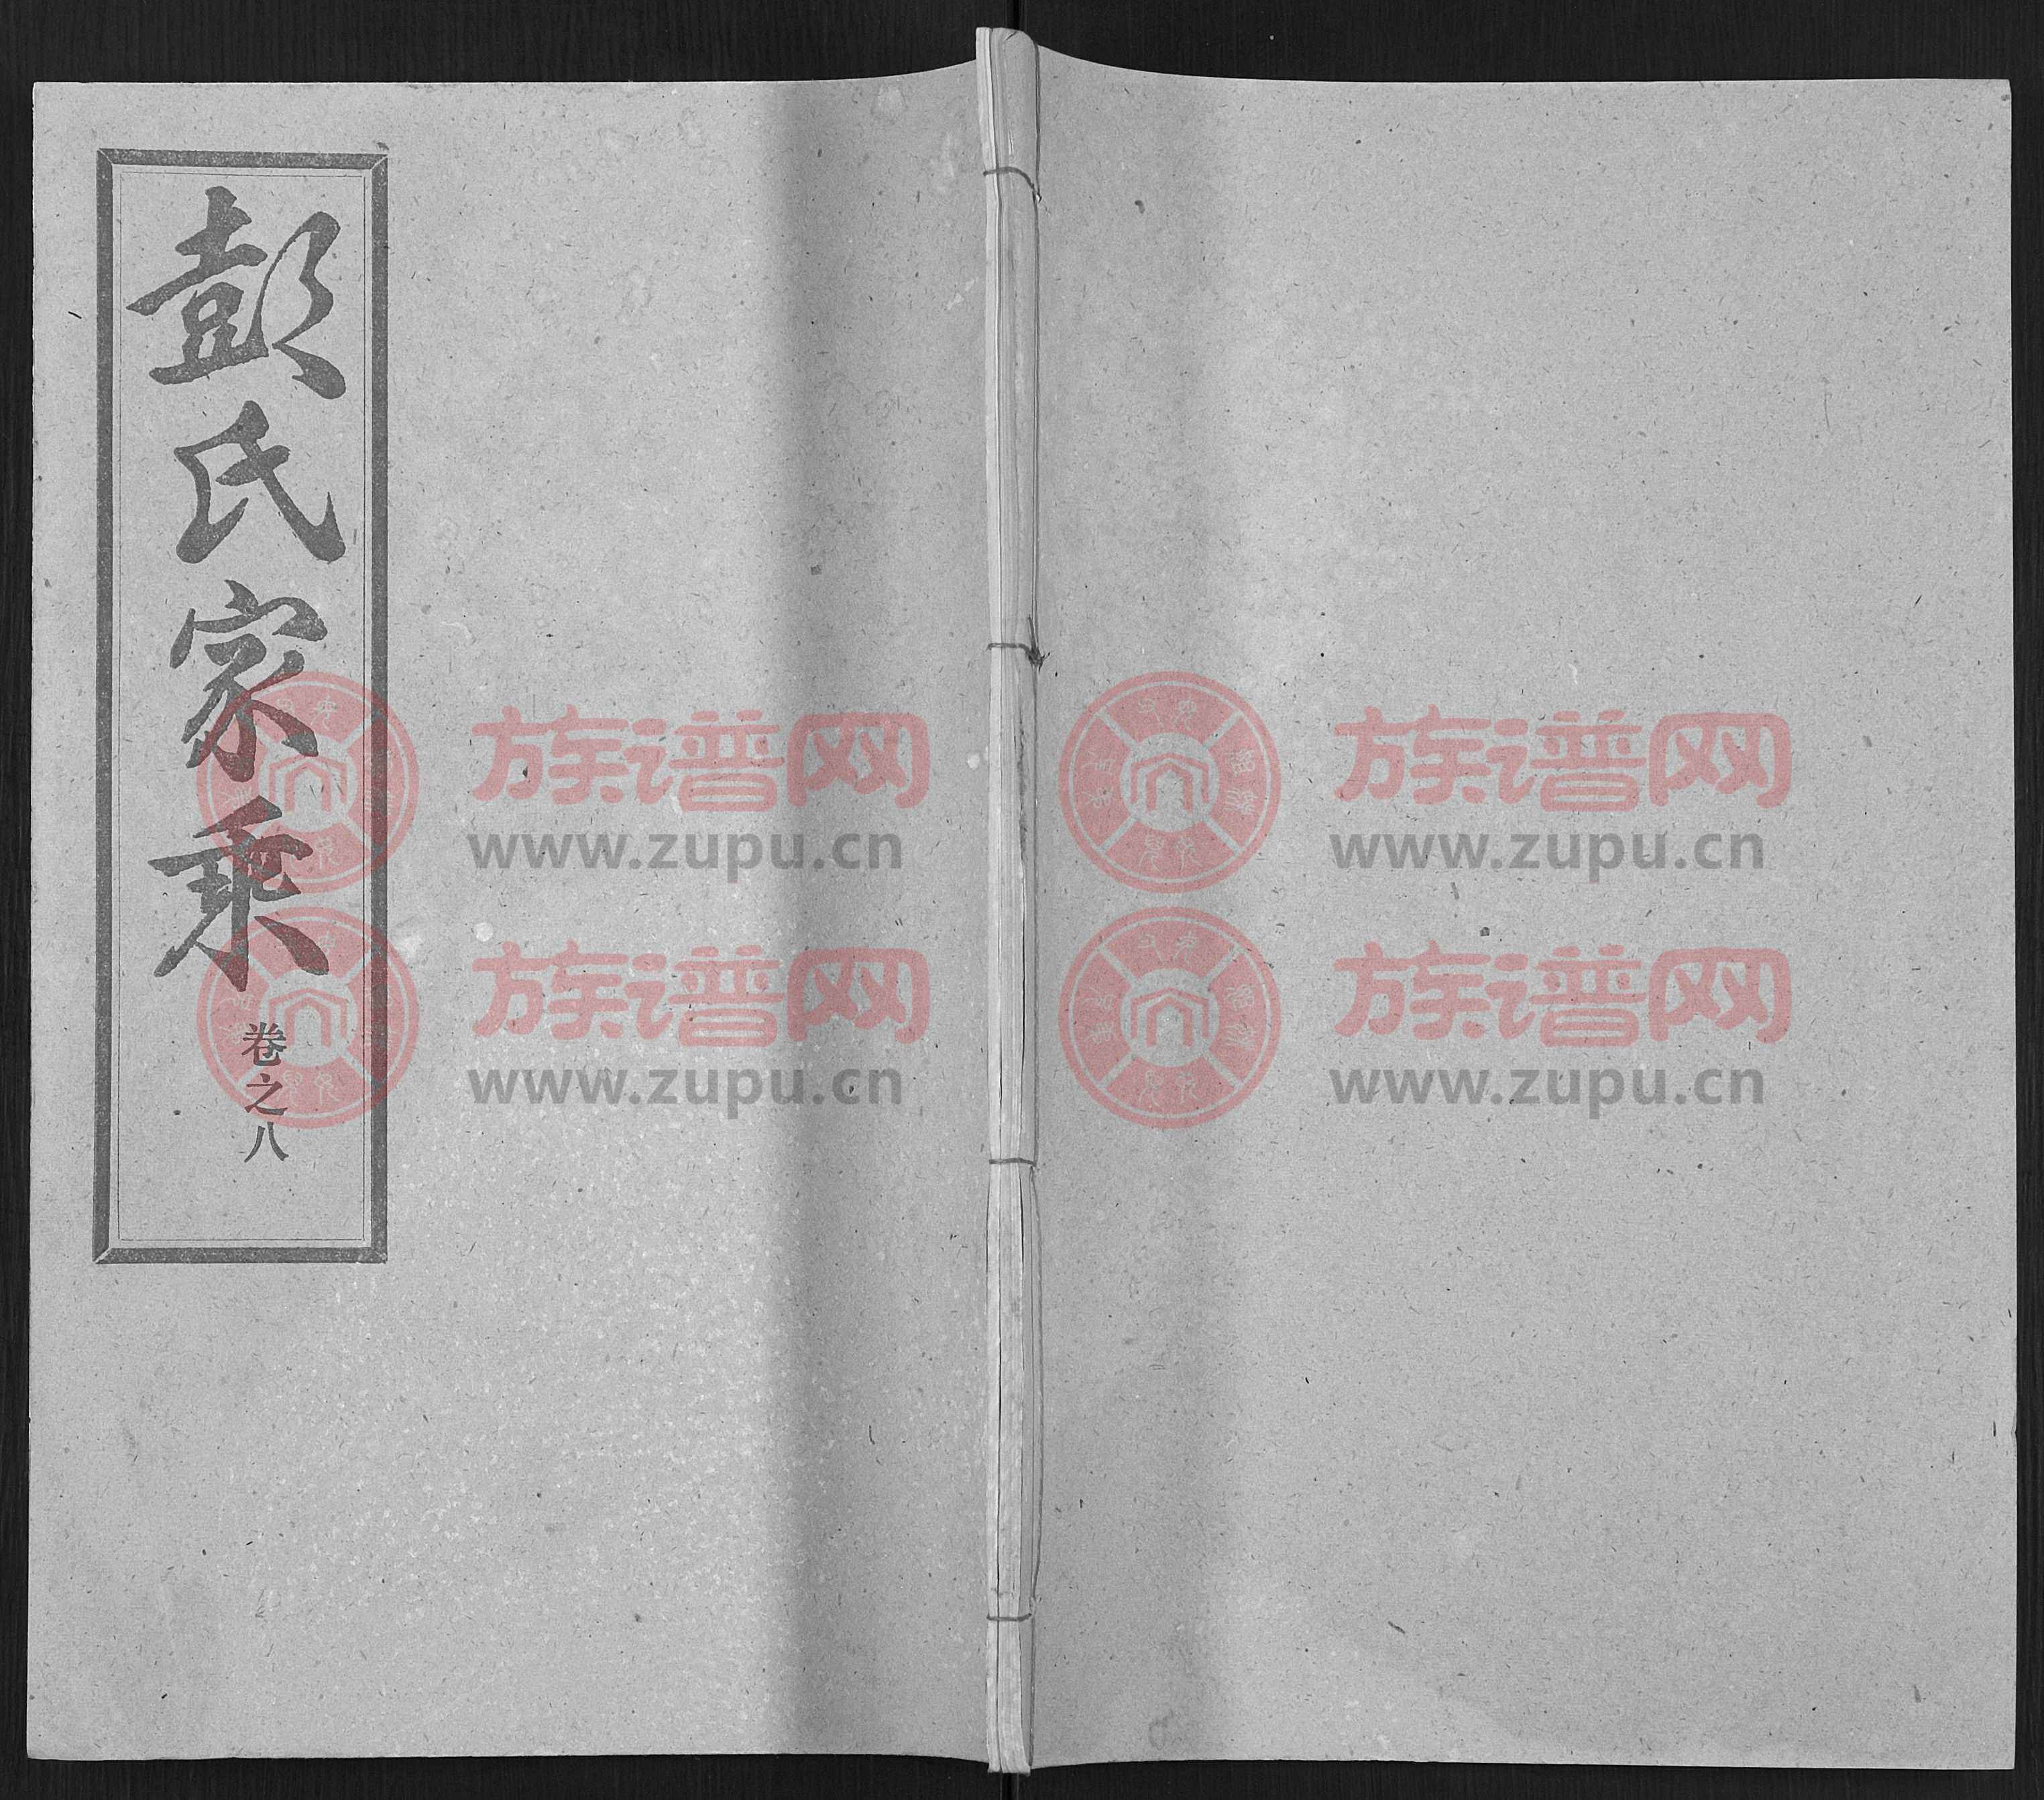 彭氏家乘
卷之八
族谱网
www.zupu.cn
族谱网
www.zupu.cn
族谱网
www.zupu.cn
族谱网
www.zupu.cn